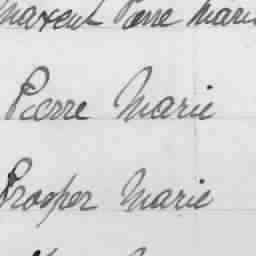 Maxent Pierre Marie
Pierre Marie
Prosper Marie